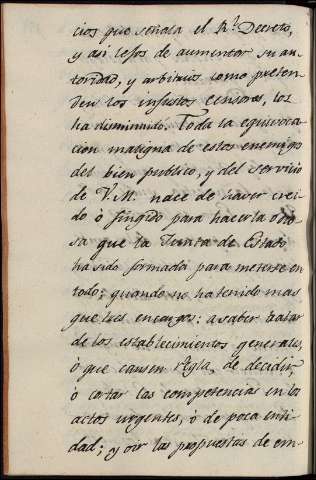 cios que señala el R.l Decreto,
y asi lejos de aumentar su au-
toridad, y arbitrios como preten-
den los injustos censores, los
ha disminuido. Toda la equivoca-
cion maligna de estos enemigos
del bien publico, y del servicio
de V. M. nace de haver crei-
do ò fingido para hacerla odio-
sa que la Junta de Estado
ha sido formada para meterse en
todo; quando no ha tenido mas
que tres encargos: a saber tratar
de los establecimientos generales,
ò que causen regla, de decidir,
ò cortar las competencias en los
actos urgentes, ò de poca enti-
dad; y oir las propuestas de em-